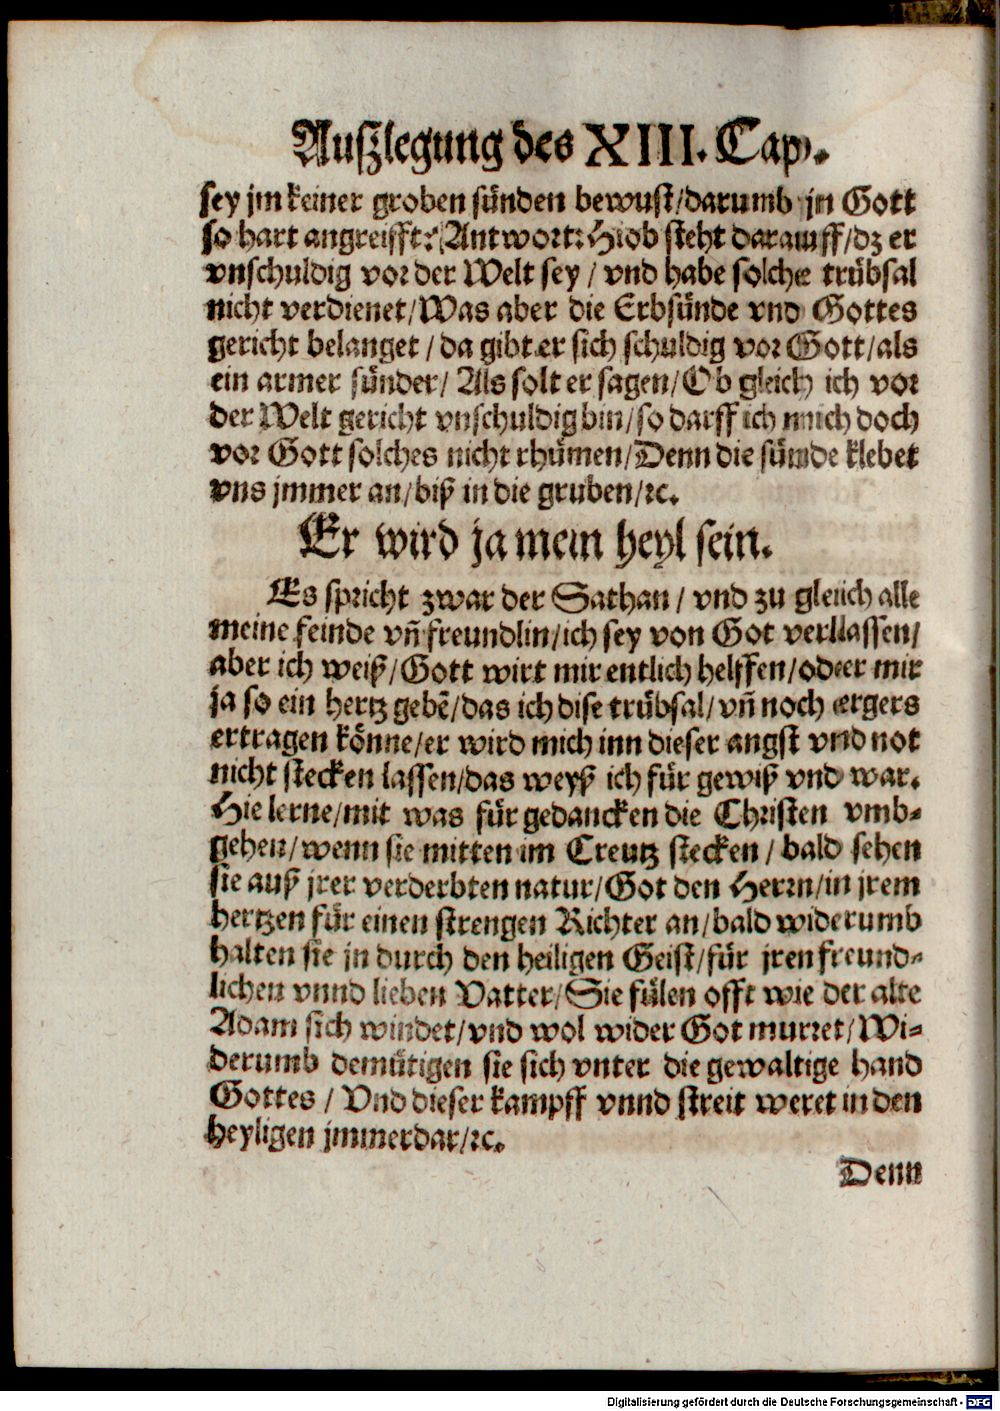 Auſzlegung des XIII. Cap.
ſey jm keiner groben ſünden bewuſt/darumb jn Gott
ſo hart angreifft: Antwort: Hiob ſteht darauff/dz er
vnſchuldig vor der Welt ſey / vnd habe ſolche trübſal
nicht verdienet/Was aber die Erbſünde vnd Gottes
gericht belanget / da gibt er ſich ſchuldig vor Gott/als
ein armer ſünder/ Als ſolt er ſagen/Ob gleich ich vor
der Welt gericht vnſchuldig bin/ſo darff ich mich doch
vor Gott ſolches nicht rhümen/Denn die ſünde klebet
vns jmmer an/biß in die gruben/ꝛc.
Er wird ja mein heyl ſein.
Es ſpricht zwar der Sathan / vnd zu gleich alle
meine feinde vñ freundlin/ich ſey von Got verllaſſen/
aber ich weiß/Gott wirt mir entlich helffen/oder mir
ja ſo ein hertz gebẽ/das ich diſe trübſal/vñ noch ergers
ertragen könne/er wird mich inn dieſer angſt vnd not
nicht ſtecken laſſen/das weyß ich für gewiß vnd war.
Hie lerne/mit was für gedancken die Chriſten vmb-
gehen/wenn ſie mitten im Creutz ſtecken / bald ſehen
ſie auß jrer verderbten natur/Got den Herrn/in jrem
hertzen für einen ſtrengen Richter an/bald widerumb
halten ſie jn durch den heiligen Geiſt/für jren freund-
lichen vnnd lieben Vatter/Sie fülen offt wie der alte
Adam ſich windet/vnd wol wider Got murret/Wi-
derumb demütigen ſie ſich vnter die gewaltige hand
Gottes / Vnd dieſer kampff vnnd ſtreit weret in den
heyligen jmmerdar/ꝛc.
Denn
Digitalisierung gefördert durch die Deutsche Forschungsgemeinschaft - DFG